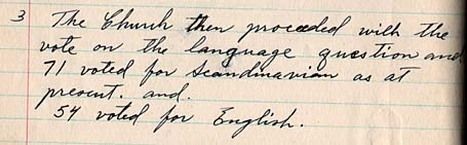 3 The Church then proceeded with the
vote on the language question and
71 voted for Scandinavian as at
present. and.
54 voted for English.